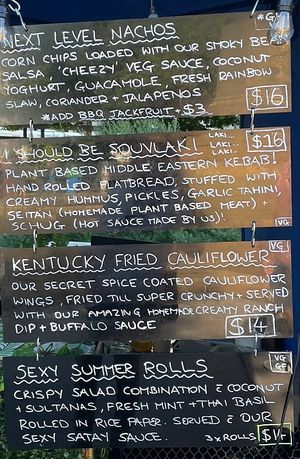 NEXT LEVEL NACHOS
GF
VG
CORN CHIPS LOADED WITH OUR SMOKY BEAN
SALSA, 'CHEEZY' VEG SAUCE, COCONUT
YOGHURT, GUACAMOLE, FRESH RAINBOW
SLAW, CORIANDER + JALAPENOS
*ADD BBQ JACKFRUIT + $3
$16
I SHOULD BE SOUVLAKI LAKI... LAKI... LAKI...
$16
PLANT BASED MIDDLE EASTERN KEBAB!
HAND ROLLED FLATBREAD, STUFFED WITH
CREAMY HUMMUS, PICKLES, GARLIC TAHINI,
SEITAN (HOMEMADE PLANT BASED MEAT) +
SCHUG (HOT SAUCE MADE BY US)!
VG
VG
KENTUCKY FRIED CAULIFLOWER
OUR SECRET SPICE COATED CAULIFLOWER
WINGS, FRIED TILL SUPER CRUNCHY + SERVED
WITH OUR AMAZING HOMEMADE CREAMY RANCH
DIP + BUFFALO SAUCE
$14
SEXY SUMMER ROLLS
VG
GF
CRISPY SALAD COMBINATION & COCONUT
+ SULTANAS, FRESH MINT + THAI BASIL
ROLLED IN RICE PAPER. SERVED & OUR
SEXY SATAY SAUCE. 3 x ROLLS $14